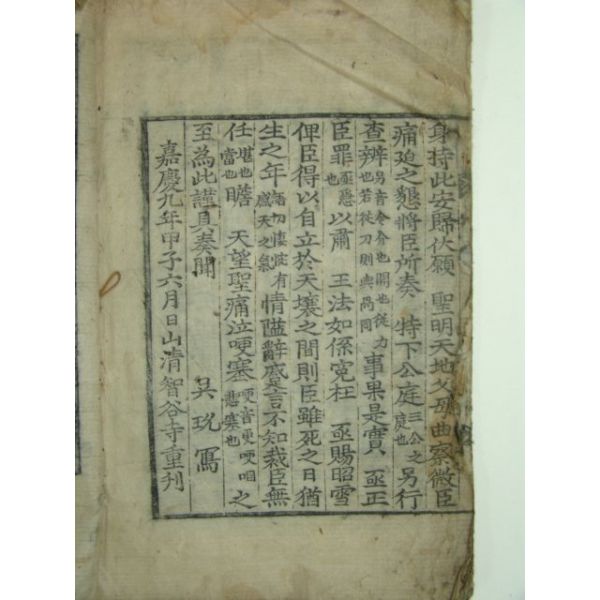 身持此安歸伏願 聖明天地父母曲察微臣
痛迫之懇將臣所奏 特下公庭三公之庭也另行
查辨另音令分也開也從力也若從刀則與咼同事果是實 亟正
臣罪亟急也以肅 王法如係寃枉 亟賜昭雪
俾臣得以自立於天壤之間則臣雖死之日猶
生之年 情隘辭蹙言不知裁臣無
任堪也當也瞻 天望聖痛泣哽塞哽音更哽咽悲塞也之
至為此謹具奏聞 吳 寫
嘉慶九年甲子六月日山清智谷寺重刋